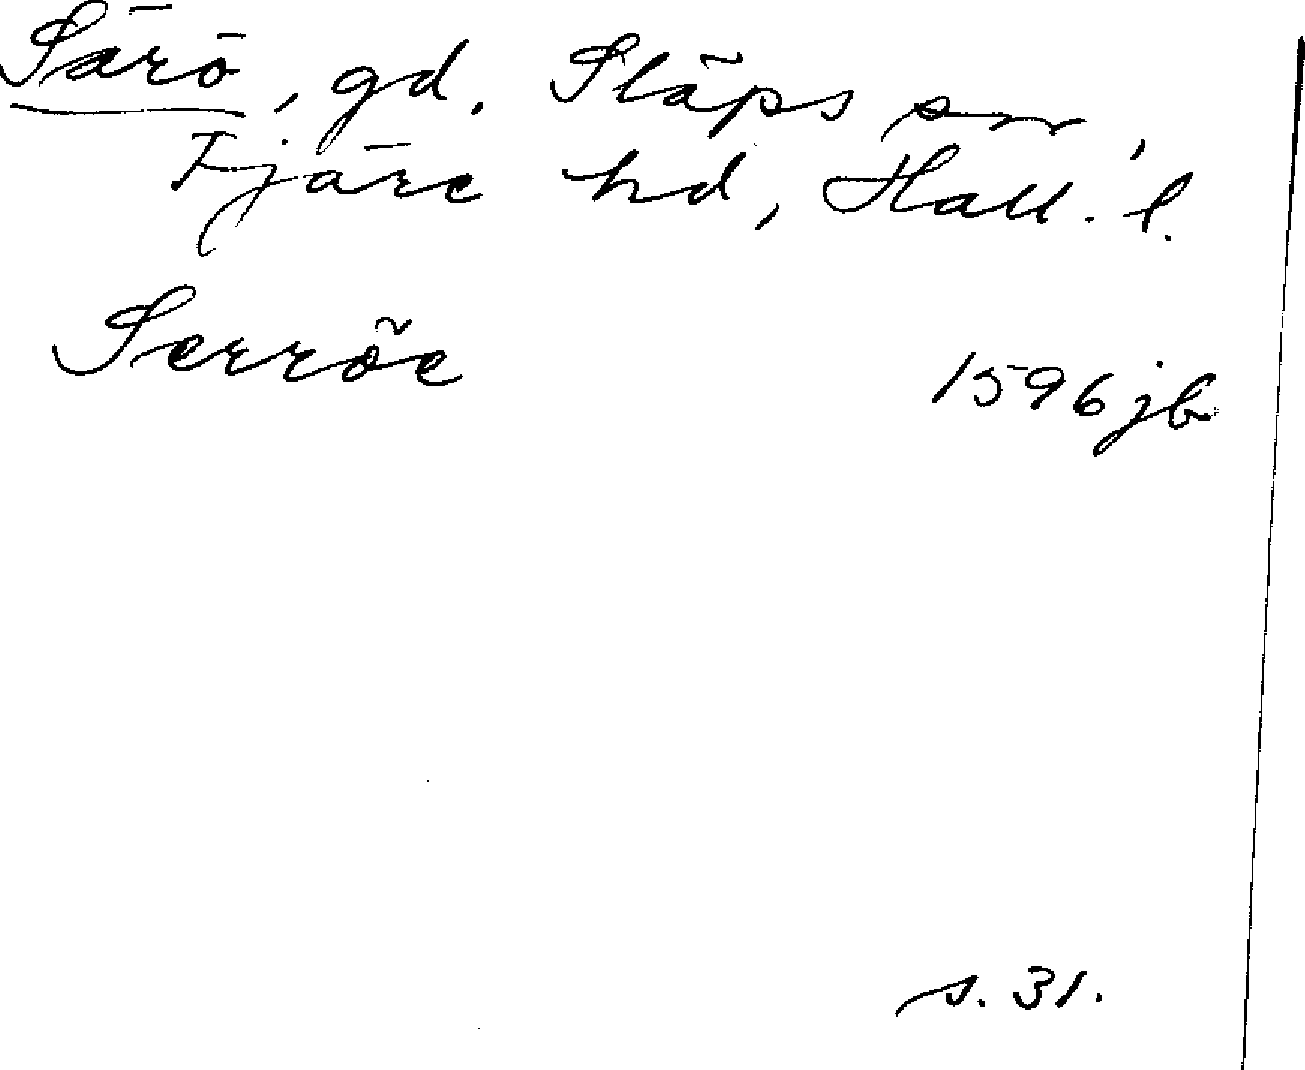 Särö, gd, Släps sn,
Fjäre hd, Hall. l.
Serröe 1596 jb
s. 31.